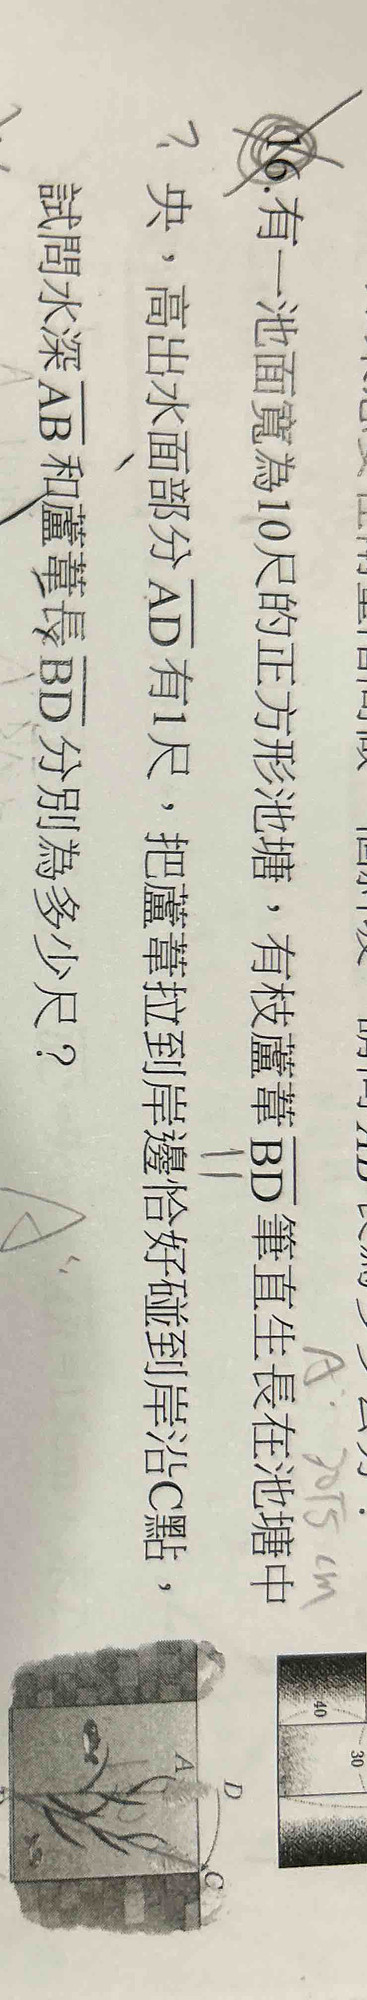 A: 20√5 cm
16.有一池面寬為10尺的正方形池塘，有枝蘆葦BD筆直生長在池塘中
？央，高出水面部分AD有1尺，把蘆葦拉到岸邊恰好碰到岸沿C點，
試問水深AB和蘆葦長BD分別為多少尺？
A:
40
30
D
A
C